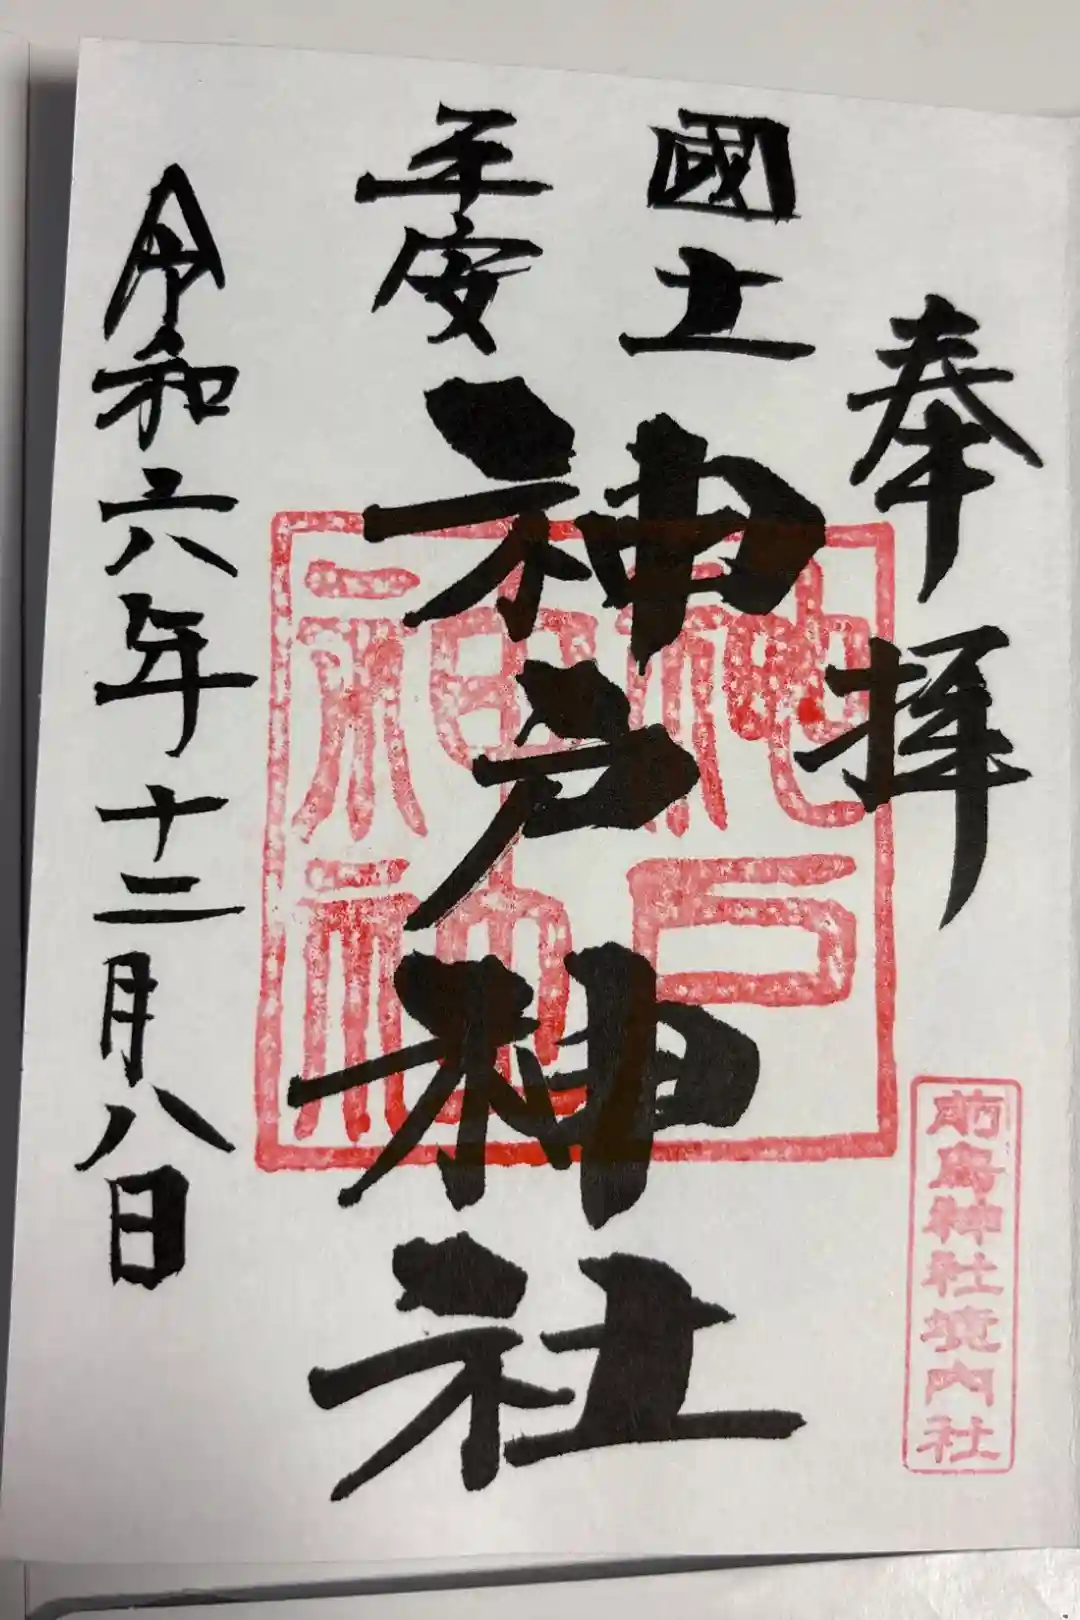 奉拝
前鳥神社境内社
國土
平安
神戸神社
神戸
神社
令和六年十二月八日